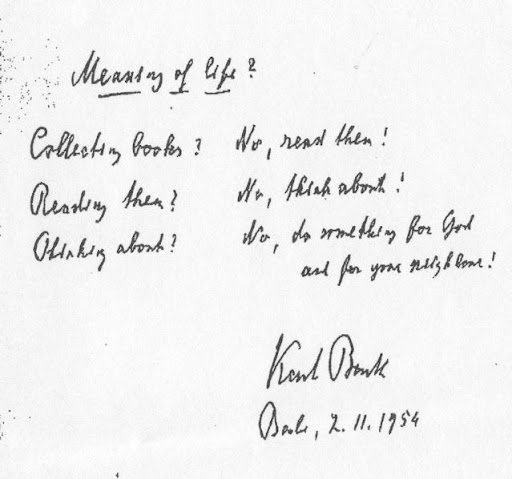 Meaning of life?
Collecting books? No, read them!
Reading them? No, think about!
Thinking about? No, do something for God
and for your neighbour!
Karl Barth
Basle, 2.11.1954